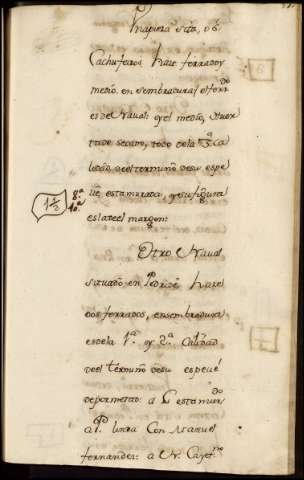 Una pieza sita, dô
Cachufeiros hace ferrado y
medio en sembradura; el ferr.do
es de Naval: y el medio,
tade secano, todo de la 3.ª Ca
lidad, del termino de su espe
cie, esta murada, y su figura
es la del margen:
1½ 8.ª 10.ª
Otro Naval
situado en Pedride hace
dos ferrados, en sembradura
es de la 1.ª y 2.ª Calidad
del termino de su especie
de por metad: a L esta mur.do
a P. linda Con Manuel
fernandez: a N. Cayet.no